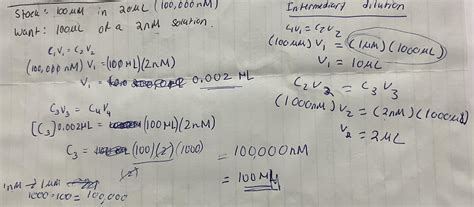 Stock: 100μM in 20μL (100,000nM)
Want: 100μL of a 2nM solution.
C₁V₁ = C₂V₂
(100,000 nM) V₁ = (100μL)(2nM)
V₁ = 0.002 μL
C₃V₃ = C₄V₄
[C₃] 0.002μL = (100μL)(2nM)
C₃ = (100)(2)(1000)
= 100,000nM
= 100μM
1nM → 1μM
1000 × 100 = 100,000
Intermediary dilution
C₁V₁ = C₂V₂
(100μM) V₁ = (1μM)(1000μL)
V₁ = 10μL
C₂V₂ = C₃V₃
(1000nM) V₂ = (2nM)(1000μL)
V₂ = 2μL